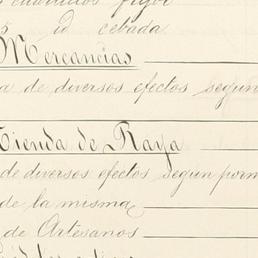 5 id cebada
Mercancías
a de diversos efectos segun
Tienda de Raya
de diversos efectos segun porm
de la misma
de Artesanos